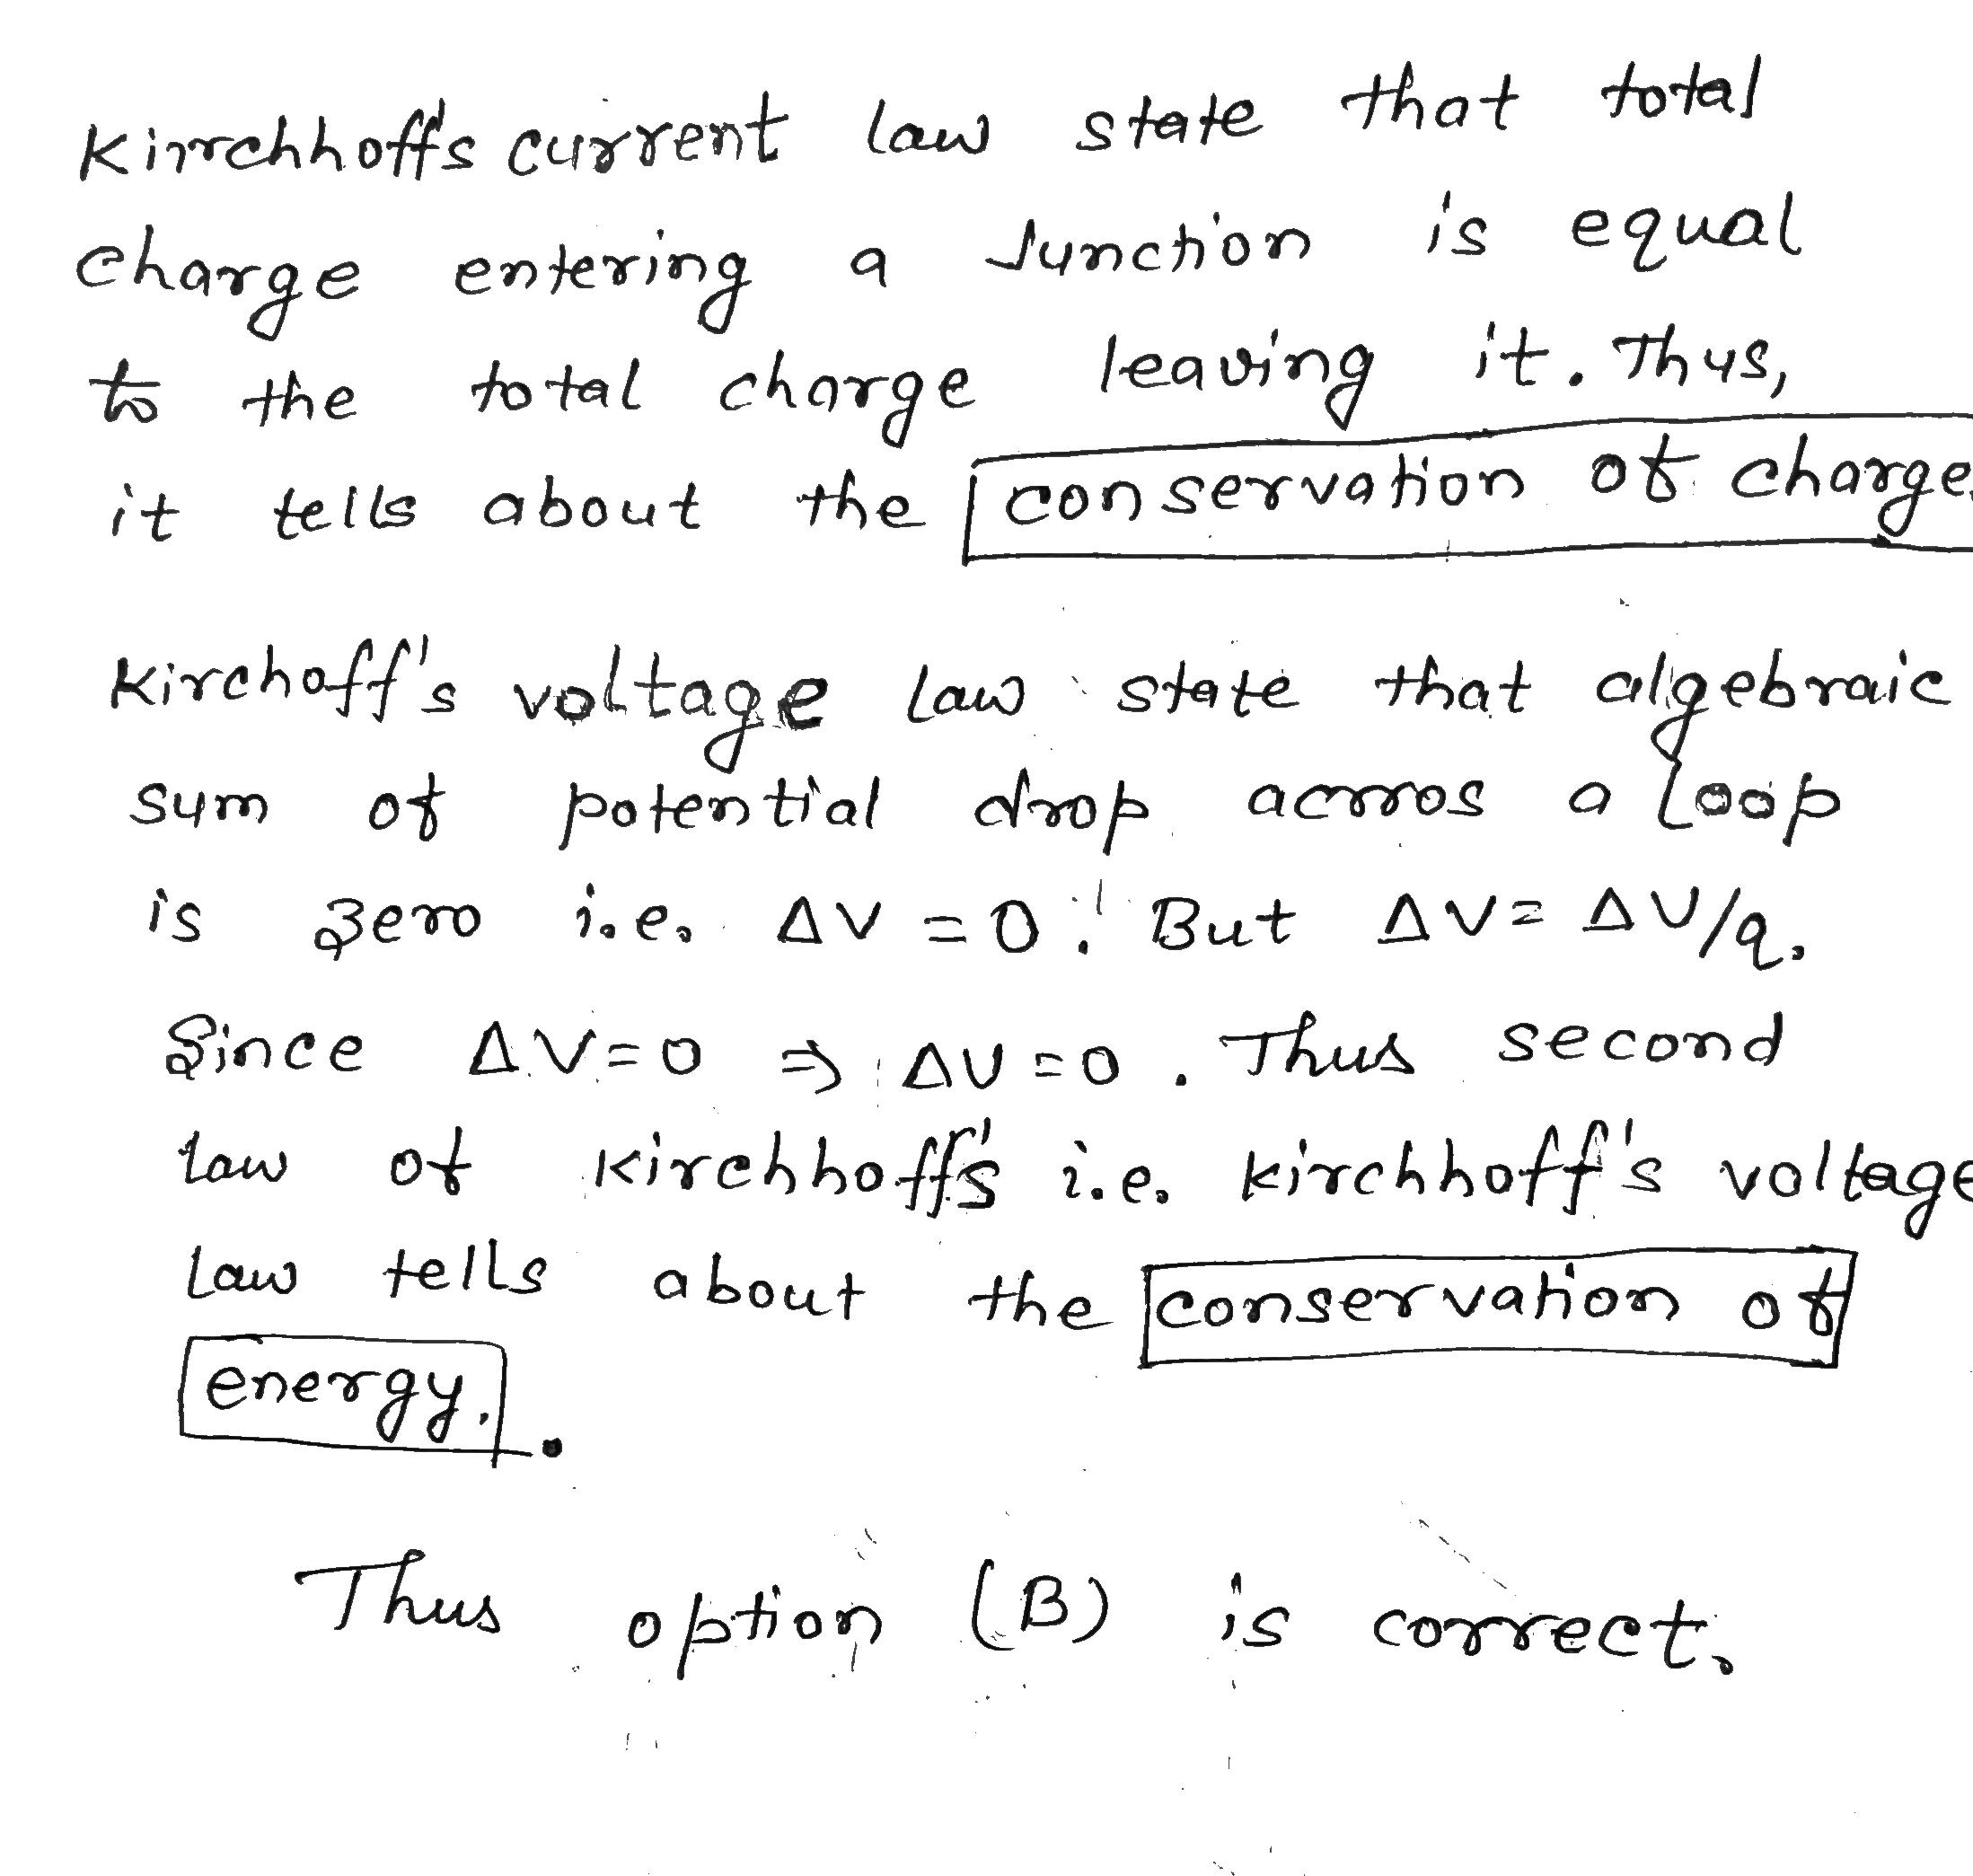 Kirrchhoff's current law state that total
charge entering a Junction is equal
to the total charge leaving it. Thus,
it tells about the conservation of charge.
Kirchoff's voltage law state that algebraic
sum of potential drop acrros a loop
is zero i.e. ΔV = 0. But ΔV = ΔU/q.
Since ΔV=0 ⇒ ΔU=0. Thus second
law of Kirchhoff's i.e. Kirchhoff's voltage
law tells about the conservation of
energy.
Thus option (B) is correct.